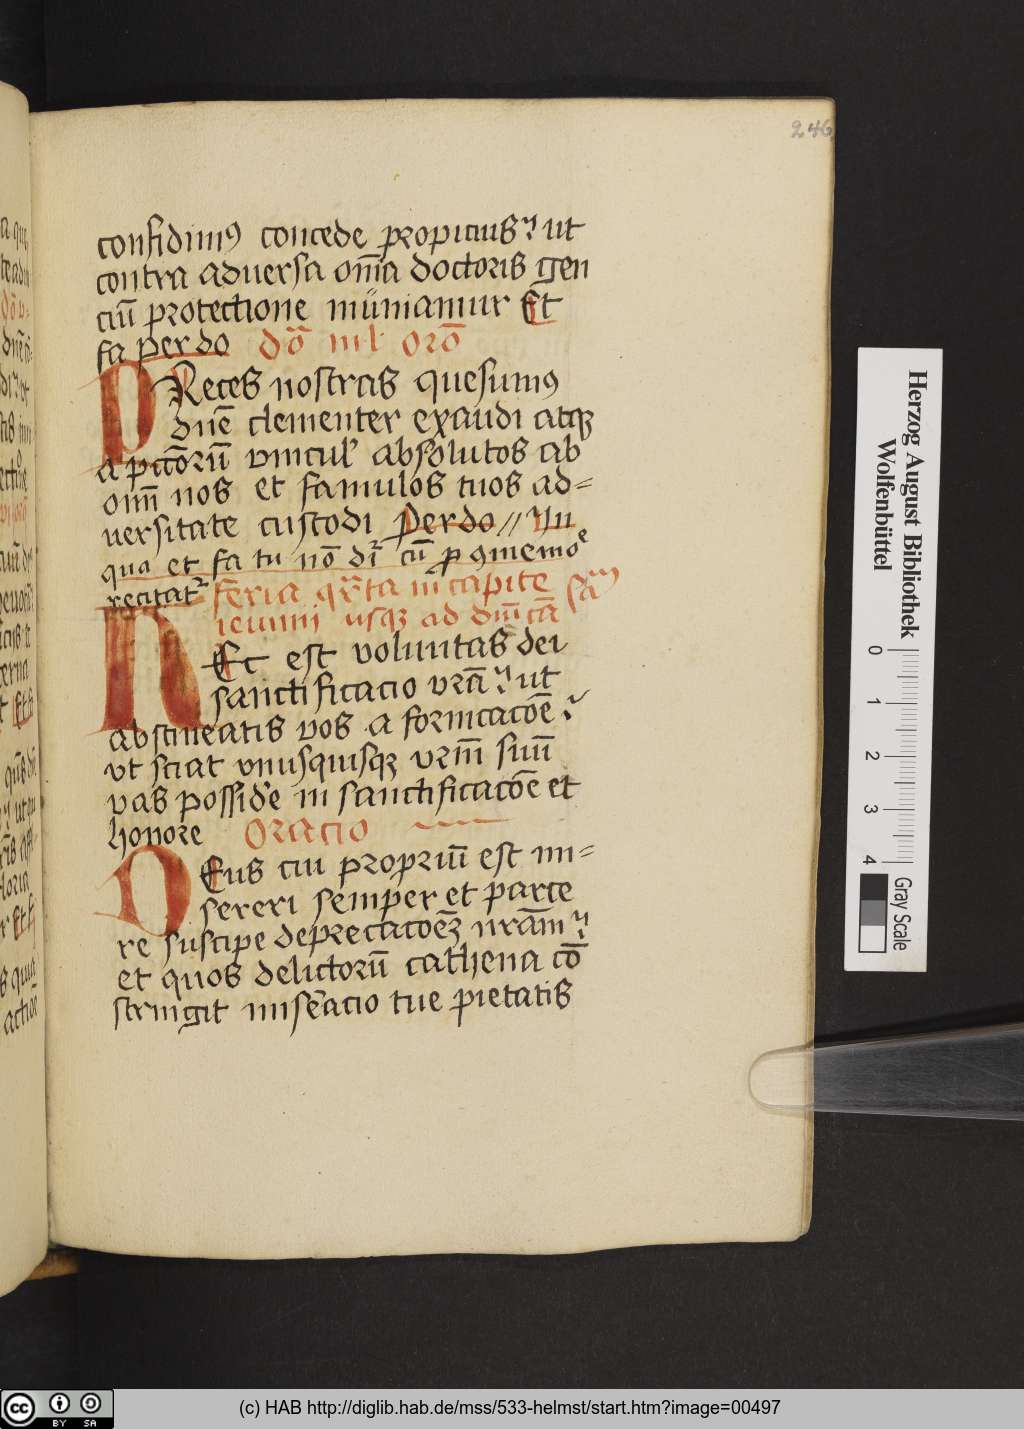 246
confidimꝯ concede propicius ut
contra aduersa om̄ia doctoris gen
ciū protectione muniamur Et
fa perdo dō in lx orō
PReces nostras quesumꝯ
dn̄e clementer exaudi atqꝫ
a pctōrū vincul' absolutos ab
om̄i nos et famulos tuos ad=
uersitate custodi Perdo // In
qua et fa tu nō dr̄ cū p ꝯmemōe
recitatr̄ feria qr̄ta in capite
ieiunij usqꝫ ad dn̄icā
HEc est voluntas dei
sanctificacio vr̄a ut
abstineatis vos a fornicacōe
vt sciat vnusquisqꝫ vr̄m suū
vas possidē in sanctificacōe et
honore Oracio
DEus cui propriū est mi=
sereri semper et parce
re suscipe deprecacōeꝫ nr̄am
et quos delictorū cathena cō
stringit mis̄eacio tue pietatis
Herzog August Bibliothek
Wolfenbüttel
0
1
2
3
4
Gray Scale
cc BY SA
(c) HAB http://diglib.hab.de/mss/533-helmst/start.htm?image=00497